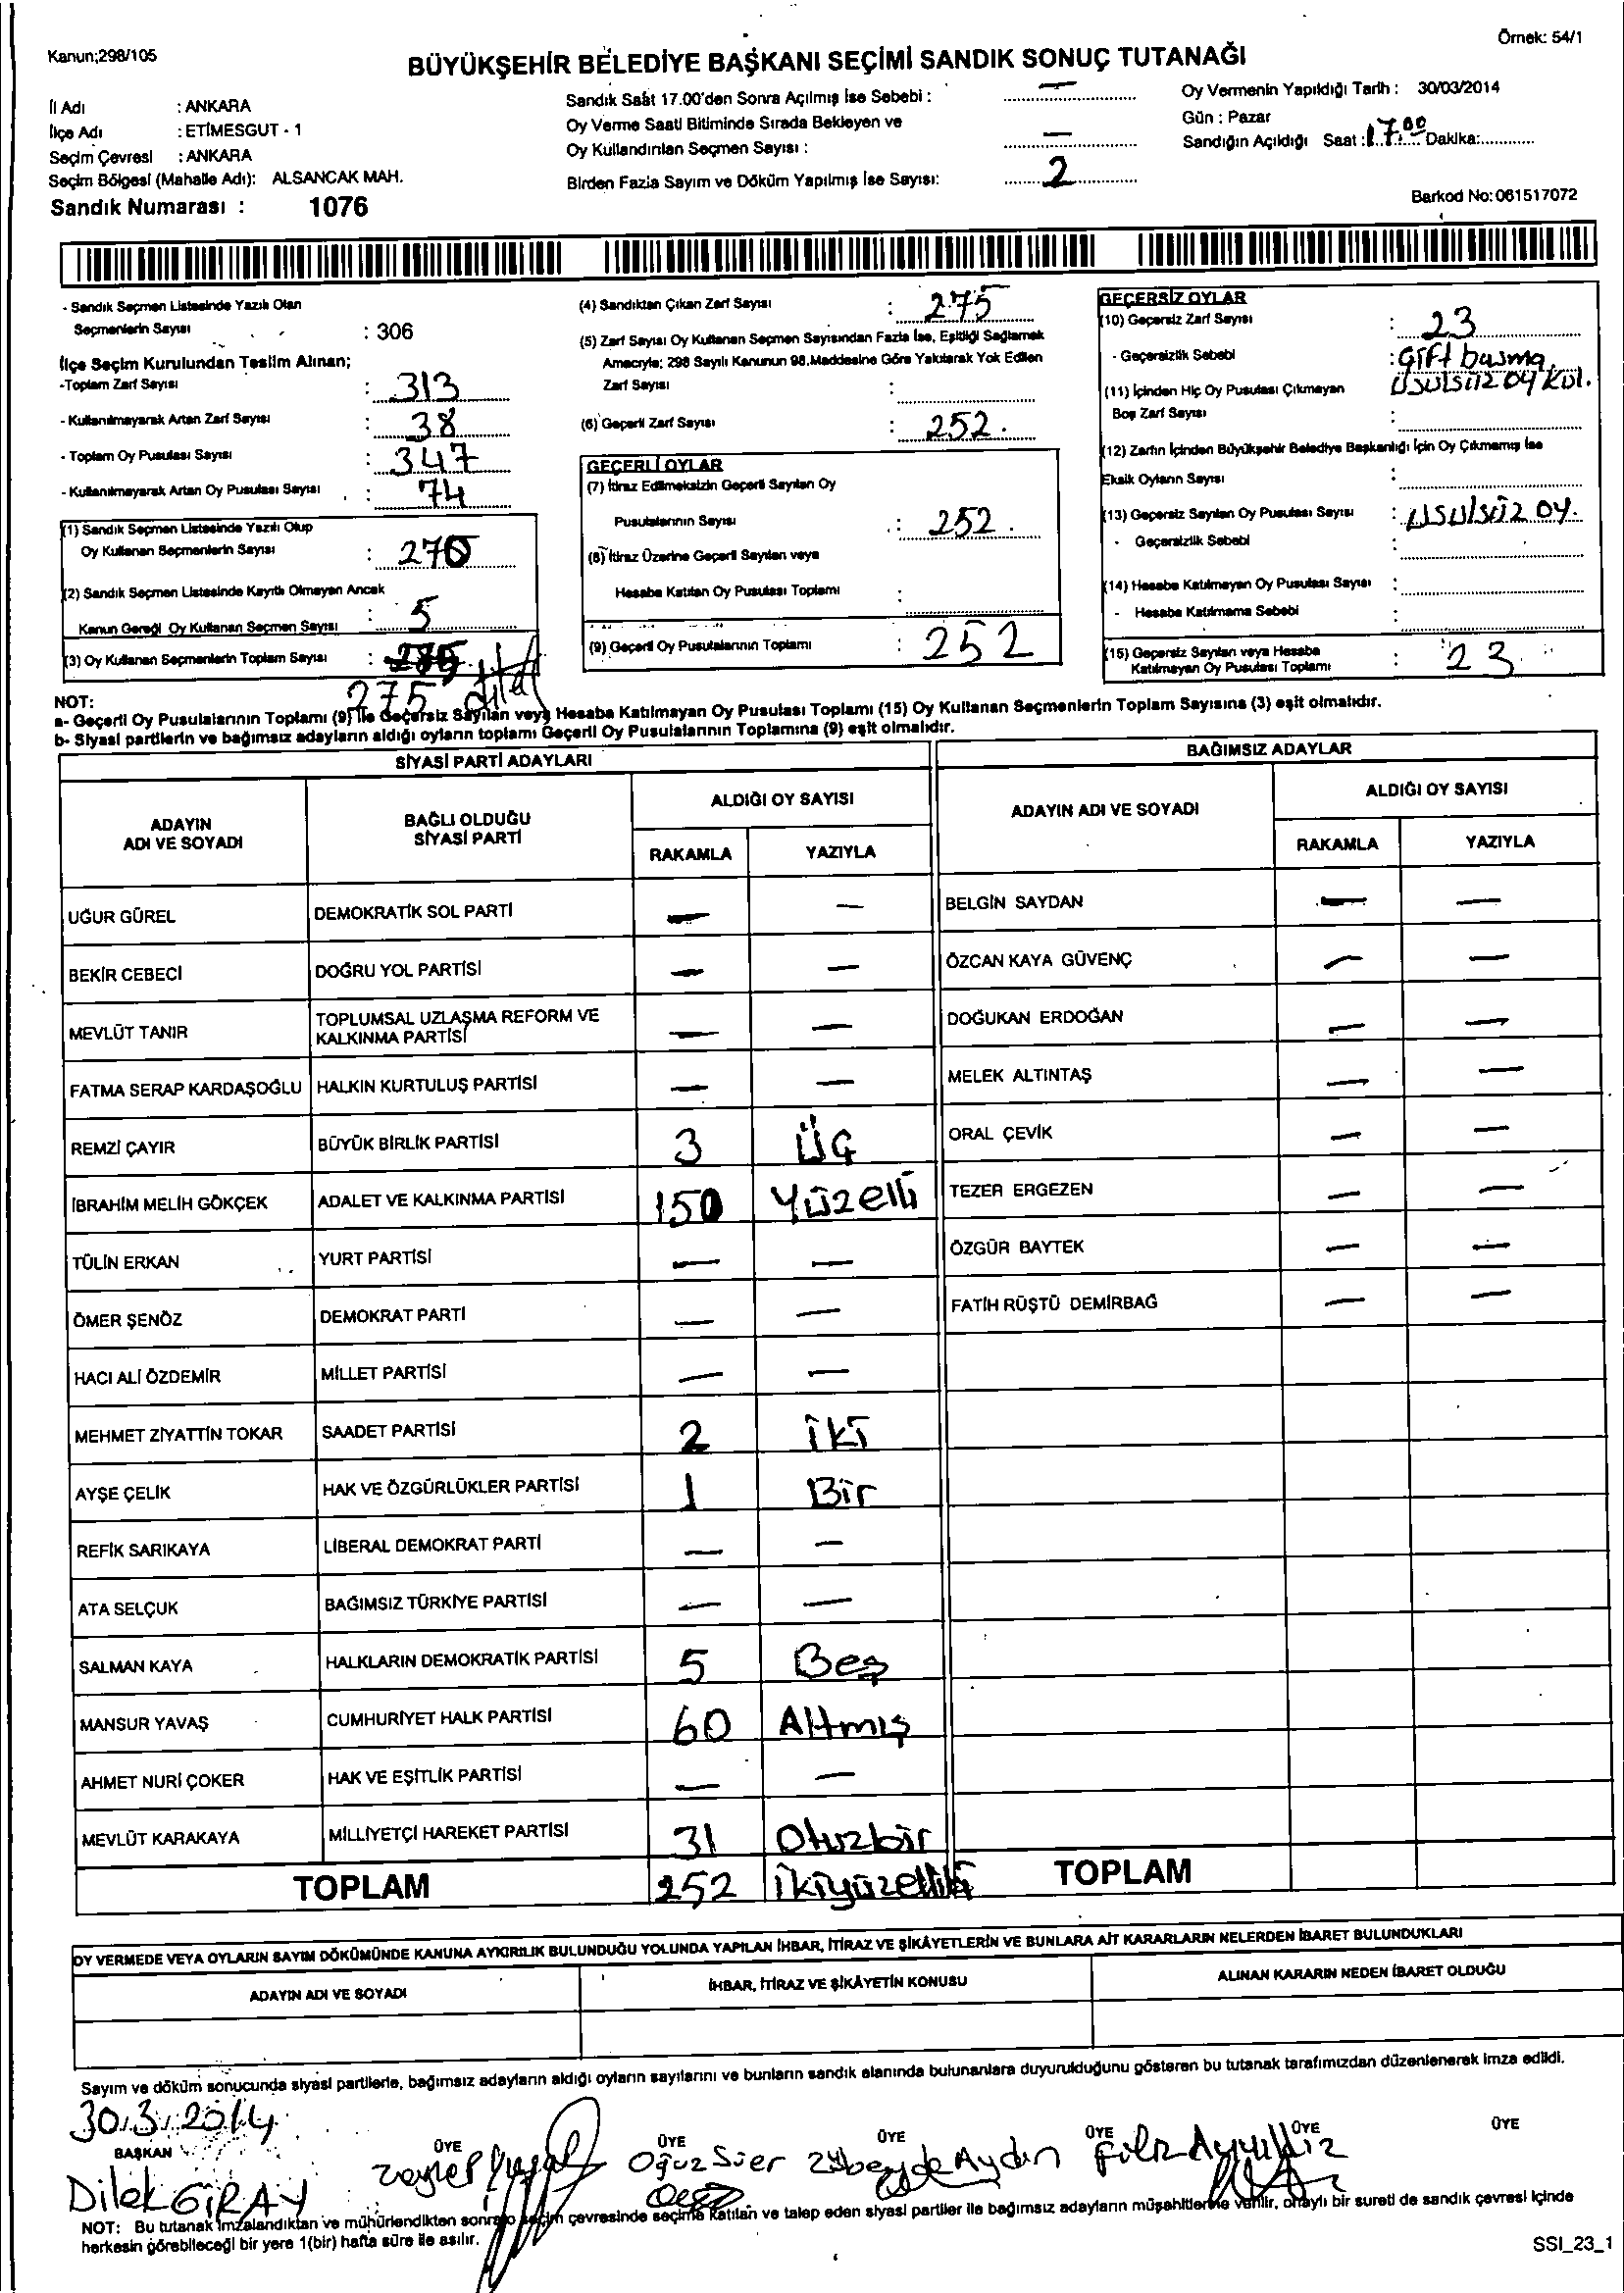 Kanun;298/105
Örnek: 54/1
BÜYÜKŞEHİR BELEDİYE BAŞKANI SEÇİMİ SANDIK SONUÇ TUTANAĞI
İl Adı : ANKARA
İlçe Adı : ETİMESGUT - 1
Seçim Çevresi : ANKARA
Seçim Bölgesi (Mahalle Adı): ALSANCAK MAH.
Sandık Numarası : 1076
Sandık Saat 17.00'den Sonra Açılmış İse Sebebi : —
Oy Verme Saati Bitiminde Sırada Bekleyen ve
Oy Kullandırılan Seçmen Sayısı : —
Birden Fazla Sayım ve Döküm Yapılmış İse Sayısı: 2
Oy Vermenin Yapıldığı Tarih : 30/03/2014
Gün : Pazar
Sandığın Açıldığı Saat : 17.00 Dakika:
Barkod No: 061517072
- Sandık Seçmen Listesinde Yazılı Olan
Seçmenlerin Sayısı : 306
İlçe Seçim Kurulundan Teslim Alınan;
-Toplam Zarf Sayısı : 313
- Kullanılmayarak Artan Zarf Sayısı : 38
- Toplam Oy Pusulası Sayısı : 347
- Kullanılmayarak Artan Oy Pusulası Sayısı : 74
(1) Sandık Seçmen Listesinde Yazılı Olup
Oy Kullanan Seçmenlerin Sayısı : 270
(2) Sandık Seçmen Listesinde Kayıtlı Olmayan Ancak
Kanun Gereği Oy Kullanan Seçmen Sayısı : 5
(3) Oy Kullanan Seçmenlerin Toplam Sayısı :
275
(4) Sandıktan Çıkan Zarf Sayısı : 275
(5) Zarf Sayısı Oy Kullanan Seçmen Sayısından Fazla İse, Eşitliği Sağlamak
Amacıyla; 298 Sayılı Kanunun 98.Maddesine Göre Yakılarak Yok Edilen
Zarf Sayısı :
(6) Geçerli Zarf Sayısı : 252.
GEÇERLİ OYLAR
(7) İtiraz Edilmeksizin Geçerli Sayılan Oy
Pusulalarının Sayısı : 252.
(8) İtiraz Üzerine Geçerli Sayılan veya
Hesaba Katılan Oy Pusulası Toplamı :
(9) Geçerli Oy Pusulalarının Toplamı : 252
GEÇERSİZ OYLAR
(10) Geçersiz Zarf Sayısı : 23
- Geçersizlik Sebebi : Çift basma,
usulsüz oy kul.
(11) İçinden Hiç Oy Pusulası Çıkmayan
Boş Zarf Sayısı :
(12) Zarfın İçinden Büyükşehir Belediye Başkanlığı İçin Oy Çıkmamış İse
Eksik Oyların Sayısı :
(13) Geçersiz Sayılan Oy Pusulası Sayısı : usulsüz oy.
- Geçersizlik Sebebi :
(14) Hesaba Katılmayan Oy Pusulası Sayısı :
- Hesaba Katılmama Sebebi :
(15) Geçersiz Sayılan veya Hesaba
Katılmayan Oy Pusulası Toplamı : 23
NOT:
a- Geçerli Oy Pusulalarının Toplamı (9) ile Geçersiz Sayılan veya Hesaba Katılmayan Oy Pusulası Toplamı (15) Oy Kullanan Seçmenlerin Toplam Sayısına (3) eşit olmalıdır.
b- Siyasi partilerin ve bağımsız adayların aldığı oyların toplamı Geçerli Oy Pusulalarının Toplamına (9) eşit olmalıdır.
SİYASİ PARTİ ADAYLARI
ADAYIN ADI VE SOYADI
BAĞLI OLDUĞU SİYASİ PARTİ
ALDIĞI OY SAYISI
RAKAMLA YAZIYLA
UĞUR GÜREL DEMOKRATİK SOL PARTİ — —
BEKİR CEBECİ DOĞRU YOL PARTİSİ — —
MEVLÜT TANIR TOPLUMSAL UZLAŞMA REFORM VE KALKINMA PARTİSİ — —
FATMA SERAP KARDAŞOĞLU HALKIN KURTULUŞ PARTİSİ — —
REMZİ ÇAYIR BÜYÜK BİRLİK PARTİSİ 3 Üç
İBRAHİM MELİH GÖKÇEK ADALET VE KALKINMA PARTİSİ 150 Yüzelli
TÜLİN ERKAN YURT PARTİSİ — —
ÖMER ŞENÖZ DEMOKRAT PARTİ — —
HACI ALİ ÖZDEMİR MİLLET PARTİSİ — —
MEHMET ZİYATTİN TOKAR SAADET PARTİSİ 2 İki
AYŞE ÇELİK HAK VE ÖZGÜRLÜKLER PARTİSİ 1 Bir
REFİK SARIKAYA LİBERAL DEMOKRAT PARTİ — —
ATA SELÇUK BAĞIMSIZ TÜRKİYE PARTİSİ — —
SALMAN KAYA HALKLARIN DEMOKRATİK PARTİSİ 5 Beş
MANSUR YAVAŞ CUMHURİYET HALK PARTİSİ 60 Altmış
AHMET NURİ ÇOKER HAK VE EŞİTLİK PARTİSİ — —
MEVLÜT KARAKAYA MİLLİYETÇİ HAREKET PARTİSİ 31 Otuzbir
TOPLAM 252 İkiyüzelliiki
BAĞIMSIZ ADAYLAR
ADAYIN ADI VE SOYADI
ALDIĞI OY SAYISI
RAKAMLA YAZIYLA
BELGİN SAYDAN — —
ÖZCAN KAYA GÜVENÇ — —
DOĞUKAN ERDOĞAN — —
MELEK ALTINTAŞ — —
ORAL ÇEVİK — —
TEZER ERGEZEN — —
ÖZGÜR BAYTEK — —
FATİH RÜŞTÜ DEMİRBAĞ — —
TOPLAM
OY VERMEDE VEYA OYLARIN SAYIM DÖKÜMÜNDE KANUNA AYKIRILIK BULUNDUĞU YOLUNDA YAPILAN İHBAR, İTİRAZ VE ŞİKÂYETLERİN VE BUNLARA AİT KARARLARIN NELERDEN İBARET BULUNDUKLARI
ADAYIN ADI VE SOYADI
İHBAR, İTİRAZ VE ŞİKÂYETİN KONUSU
ALINAN KARARIN NEDEN İBARET OLDUĞU
Sayım ve döküm sonucunda siyasi partilerle, bağımsız adayların aldığı oyların sayılarını ve bunların sandık alanında bulunanlara duyurulduğunu gösteren bu tutanak tarafımızdan düzenlenerek imza edildi.
30.3.2014
BAŞKAN ÜYE ÜYE ÜYE ÜYE ÜYE ÜYE
Dilek GİRAY Zeynep Oğuz Süer Zübeyde Aydın Filiz Ayyıldız
NOT: Bu tutanak imzalandıktan ve mühürlendikten sonra o seçim çevresinde seçime katılan ve talep eden siyasi partiler ile bağımsız adayların müşahitlerine verilir, onaylı bir sureti de sandık çevresi içinde
herkesin görebileceği bir yere 1(bir) hafta süre ile asılır.
SSI_23_1